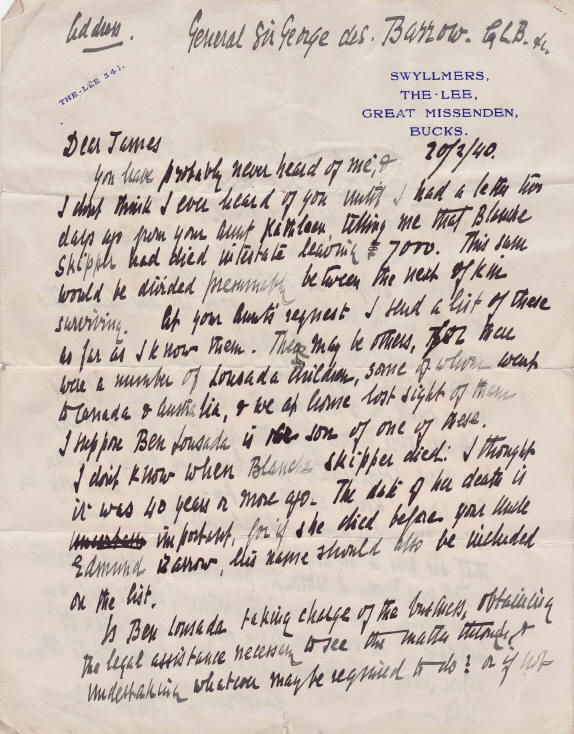 Address. General Sir George des. Barrow. G.C.B. &c.
THE-LEE 341.
SWYLLMERS,
THE-LEE,
GREAT MISSENDEN,
BUCKS.
20/2/40.
Dear James
You have probably never heard of me, &
I don't think I ever heard of you until I had a letter two
days ago from your aunt Kathleen, telling me that Blanche
Skipper had died intestate leaving £7000. This sum
would be divided presumably between the next of kin
surviving. At your Aunt's request I send a list of these
as far as I know them. There may be others, for there
were a number of Lousada children, some of whom went
to Canada & Australia, & we at home lost sight of them.
I suppose Ben Lousada is son of one of these.
I don't know when Blanche Skipper died: I thought
it was 40 years or more ago. The date of her death is
important, for if she died before your Uncle
Edmund Barrow, his name should also be included
on the list.
Is Ben Lousada taking charge of the business, obtaining
the legal assistance necessary to see the matter through, &
undertaking whatever may be required to do? or if not